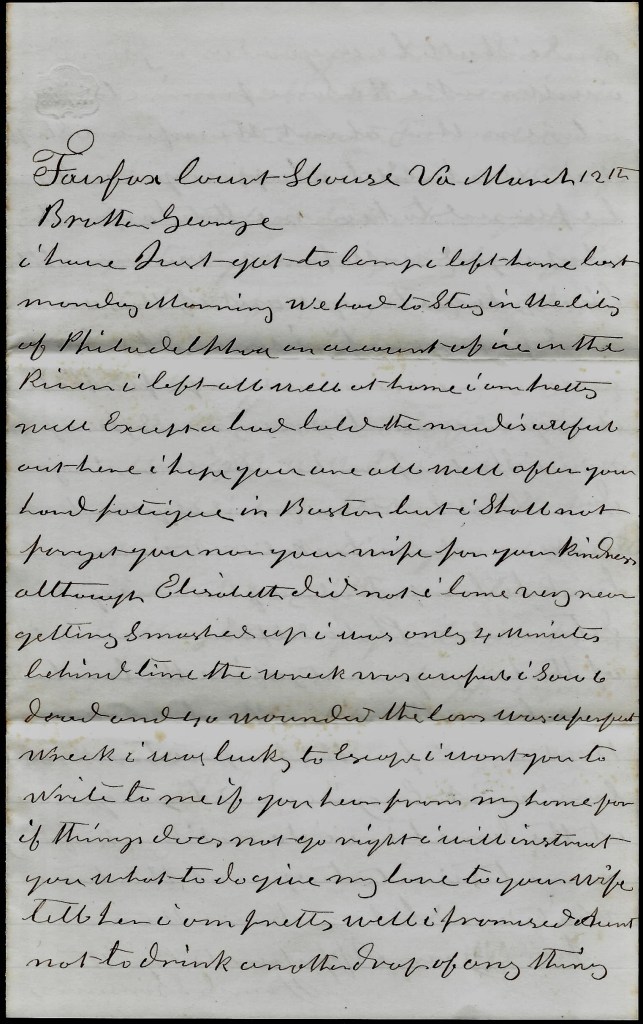 Fairfax Court House Va March 12th
Brother George
i have Just got to Camp i left home last
monday Morning We had to Stay in the City
of Philadelphia on account of ice in the
River i left all well at home i am pretty
well Except a bad Cold the mud is awful
out here i hope you are all well after your
hard fatigue in Boston but i Shall not
forget you nor your wife for your Kindness
although Elisabeth did not i Come very near
getting Smashed up i was only 4 Minutes
behind time the wreck was awful i Saw 6
dead and 40 wounded the Cars was a perfect
Wreck i was lucky to Escape i want you to
Write to me if you hear from my home for
if things does not go right i will instruct
you what to do give my love to your Wife
tell her i am pretty well i promised Aunt
not to drink another drop of any thing